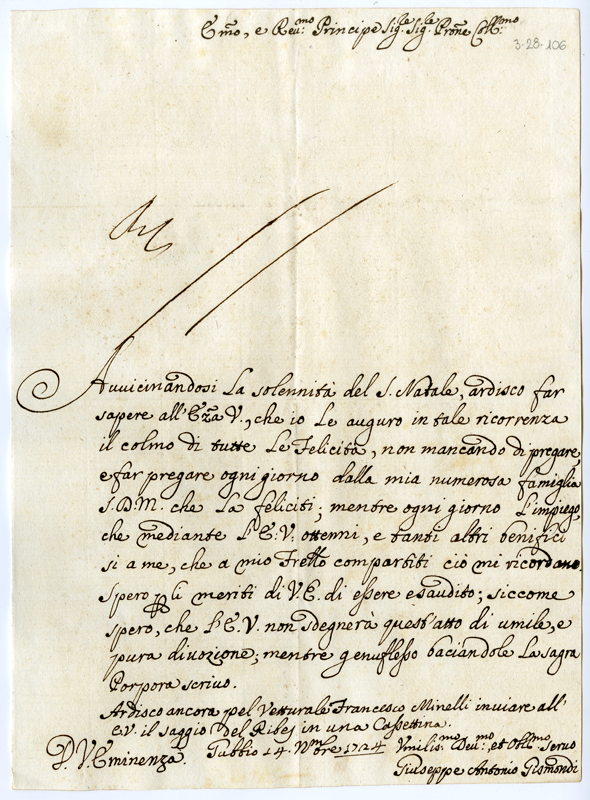 Emo, e Reu:mo Principe Sig:le Sig:le Prone Coll:mo
3-28-106
Auuicinandosi La solennità del S. Natale, ardisco far
sapere all'Eza V., che io Le auguro in tale ricorrenza
il colmo di tutte Le Felicità, non mancando di pregare,
e far pregare ogni giorno dalla mia numerosa famiglia
S. D. M. che La feliciti; mentre ogni giorno L'impiego,
che mediante L'E. V. ottenni, e tanti altri benifici
si a me, che a mio Frello compartiti ciò mi ricordano.
Spero p li meriti di V. E. di essere esaudito; siccome
spero, che L'E. V. non sdegnerà quest'atto di umile, e
pura diuozione; mentre genuflesso baciandole La sagra
Porpora scriuo.
Ardisco ancora pel Vetturale Francesco Minelli inuiare all'
E.V. il saggio del Ribes in una Cassettina.
D. V. Eminenza. 14. Nmbre 1724 Vmilis:mo Deu:mo, et Obll:mo Seruo
Giuseppe Antonio Gismondi